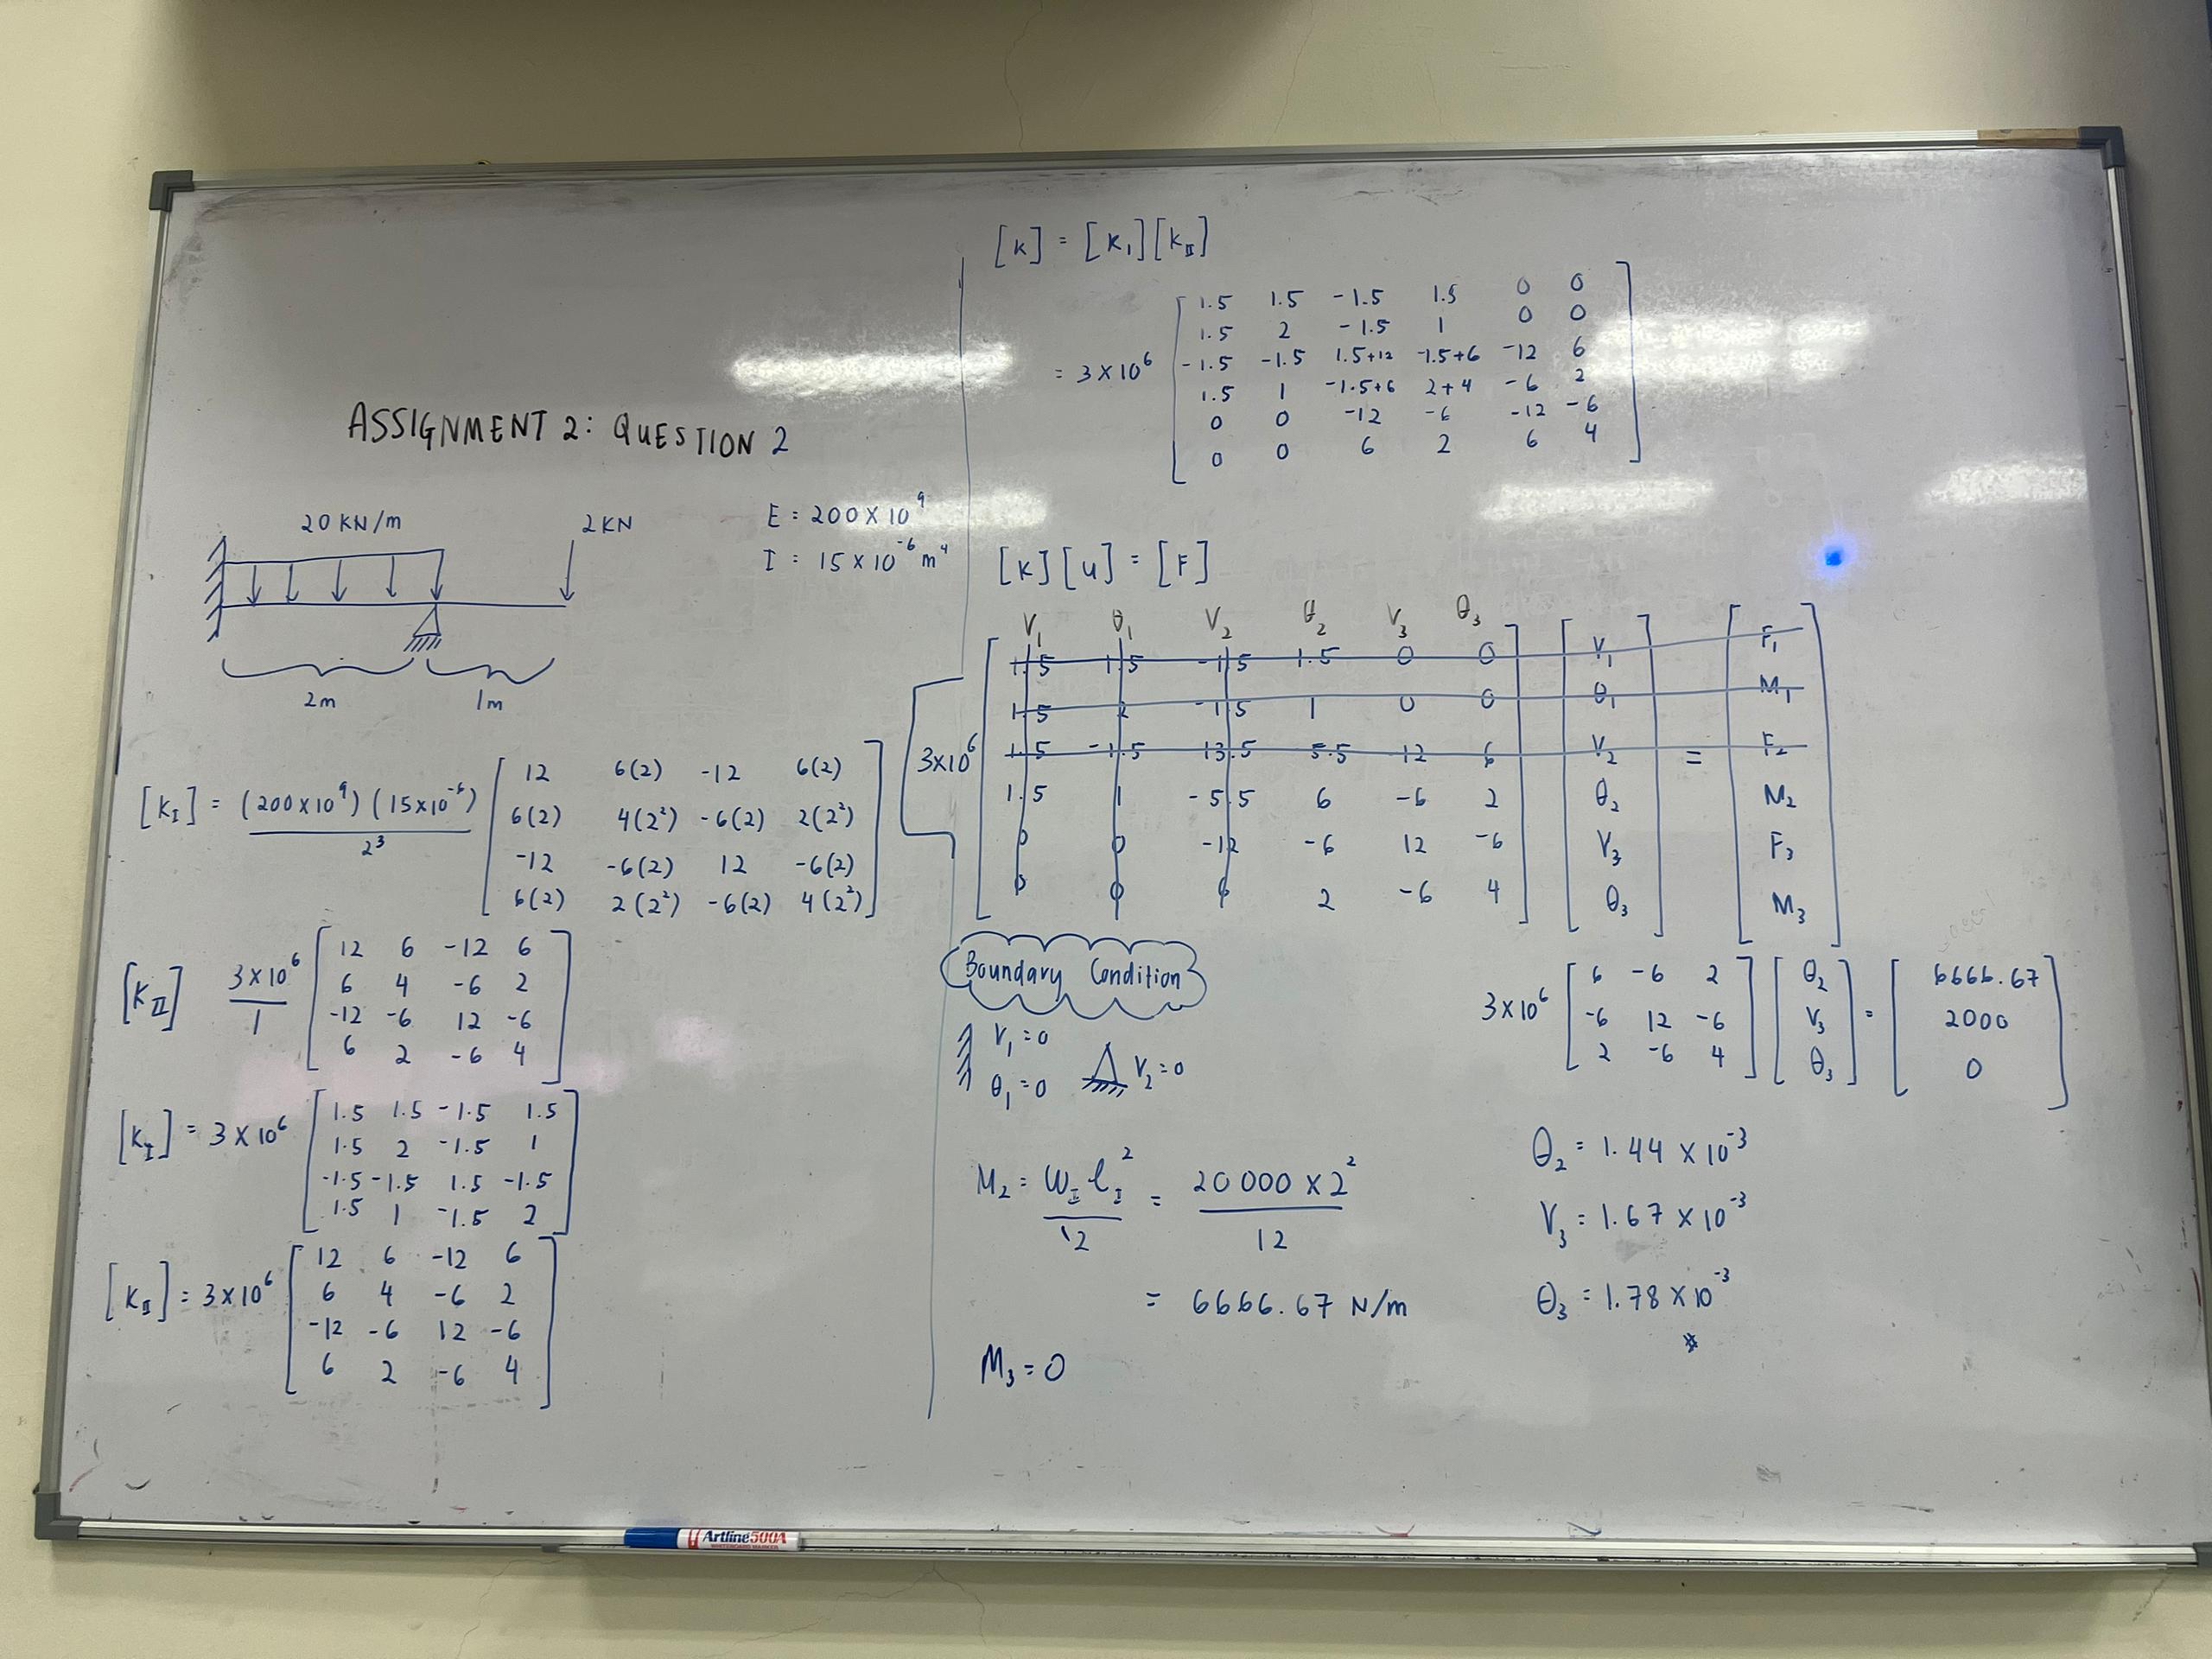 ASSIGNMENT 2: QUESTION 2
20 KN/m
2KN
E = 200 X 10⁹
I = 15 X 10⁻⁶ m⁴
2m
1m
[K_I] = (200x10⁹)(15x10⁻⁶)
2³
12 6(2) -12 6(2)
6(2) 4(2²) -6(2) 2(2²)
-12 -6(2) 12 -6(2)
6(2) 2(2²) -6(2) 4(2²)
[K_II] 3x10⁶
1
12 6 -12 6
6 4 -6 2
-12 -6 12 -6
6 2 -6 4
[K_I] = 3 X 10⁶
1.5 1.5 -1.5 1.5
1.5 2 -1.5 1
-1.5 -1.5 1.5 -1.5
1.5 1 -1.5 2
[K_II] = 3x10⁶
12 6 -12 6
6 4 -6 2
-12 -6 12 -6
6 2 -6 4
[K] = [K_I][K_II]
= 3 X 10⁶
1.5 1.5 -1.5 1.5 0 0
1.5 2 -1.5 1 0 0
-1.5 -1.5 1.5+12 -1.5+6 -12 6
1.5 1 -1.5+6 2+4 -6 2
0 0 -12 -6 -12 -6
0 0 6 2 6 4
[K][U] = [F]
V₁ θ₁ V₂ θ₂ V₃ θ₃
3x10⁶
1.5 1.5 -1.5 1.5 0 0 V₁ F₁
1.5 2 -1.5 1 0 0 θ₁ M₁
1.5 -1.5 13.5 5.5 12 6 V₂ = F₂
1.5 1 -5.5 6 -6 2 θ₂ M₂
0 0 -12 -6 12 -6 V₃ F₃
0 0 6 2 -6 4 θ₃ M₃
Boundary Condition
V₁ = 0
θ₁ = 0
V₂ = 0
M₂ = W_I ℓ_I² / 12 = 20 000 x 2² / 12
= 6666.67 N/m
M₃ = 0
3x10⁶
6 -6 2 θ₂ 6666.67
-6 12 -6 V₃ = 2000
2 -6 4 θ₃ 0
θ₂ = 1.44 x 10⁻³
V₃ = 1.67 x 10⁻³
θ₃ = 1.78 x 10⁻³
Artline 500A
WHITEBOARD MARKER